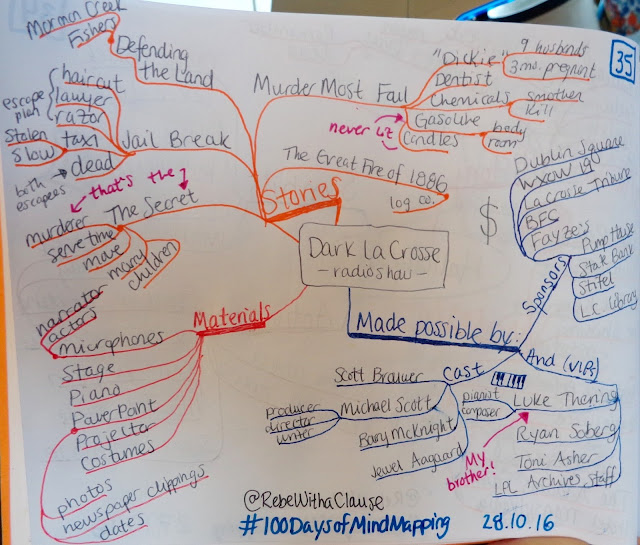 35
Dark La Crosse
- radio show -
Stories
Defending
the Land
Mormon Creek
Fishers
Jail Break
escape
plan
haircut
lawyer
razor
stolen
slow
taxi
both
escapees
dead
The Secret
that's the
murderer
serve time
move
marry
children
Murder Most Fail
"Dickie"
9 husbands
3 mo. pregnant
Dentist
Chemicals
smother
kill
never lit
Gasoline
Candles
body
room
The Great Fire of 1886
log co.
$
Materials
narrator
actors
microphones
Stage
Piano
PowerPoint
Projector
Costumes
photos
newspaper clippings
dates
Made possible by:
Sponsors
Dublin Square
WXOW 19
La Crosse Tribune
BFG
Fayze's
Pump House
State Bank
Stifel
L.C. library
Cast
Scott Brauer
producer
director
writer
Michael Scott
Barry McKnight
Jewel Aagaard
And (VIPs)
pianist
composer
Luke Thering
My
brother!
Ryan Soberg
Toni Asher
LPL Archives staff
@RebeWithaClause
#100DaysofMindMapping 28.10.16